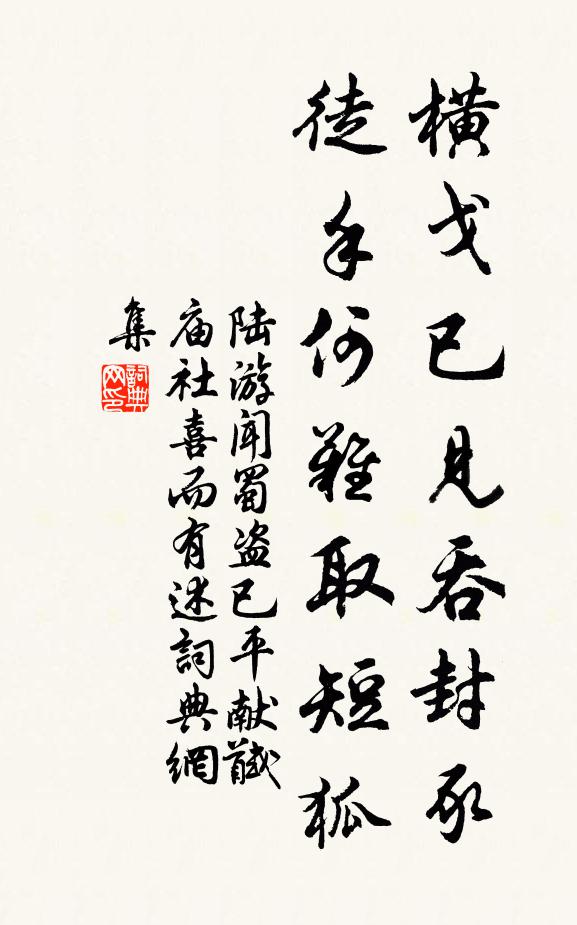 横戈已見吞封豕
徒手何難取短狐
陆游闻蜀盗已平献馘
庙社喜而有述詞典網
集
詞典
网印